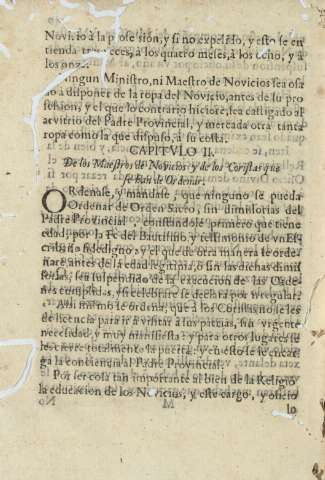 Novicio à la profesion, y si no expelido, y esto se en
tienda tres veces, à los quatro meses, à los ocho, y à
los onze.
Ningun Ministro, ni Maestro de Novicios sea osa
do à disponer de la ropa del Novicio, antes de su pro
fession, y el que lo contrario hiciere, sea castigado al
arvitrio del Padre Provincial, y mercada otra tanta
ropa como la que dispuso, à su costa.
CAPITVLO II.
De los Maestros de Novicios y de los Coristas que
se han de Ordenar.
ORdenase, y mandase, que ninguno se pueda
Ordenar de Orden Sacro, sin dimisorias del
Padre Provincial, constandole primero que tiene
edad, por la Fe del Bautismo y testimonio de vn Es
cribano fidedigno: y el que de otra manera se orde
nare antes de la edad legitima, ò sin las dichas dimis
sorias, sea suspendido de la execucion de las Orde
nes y si celebrare se declara por irregular.
Assi mismo se ordena, que à los Coristas no se les
de licencia para ir à visitar à sus patrias, sin vrgente
necessidad, y muy manifiesta: y para otros lugares se
les cierre totalmente la puerta: y en esto se le encar
ga la conciencia al Padre Provincial.
Por ser cosa tan importante al bien de la Religiõ
la educacion de los Novicios, y este cargo, y oficio
lo